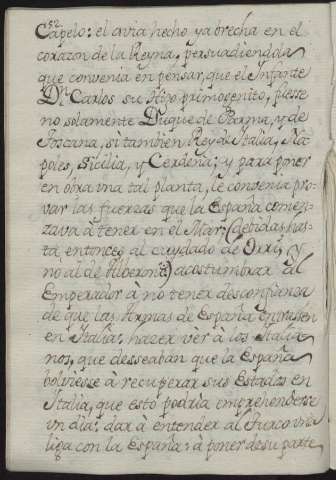 52
Capelo: el avia hecho ya brecha en el
corazon de la Reyna, persuadiendola
que convenia en pensar, que el Infante
Dn. Carlos su Hijo primogenito, fuesse
no solamente Duque de Parma, y de
Toscana, si tambien Rey de Italia, Na
poles, Sicilia, y Cerdeña: y para poner
en obra una tal planta, le convenia pro-
var las fuerzas que la España comen-
zava à tener en el Mar; (devidas has-
ta entonces al cuydado de Orri, y
no al de Alberoni) acostumbrar al
Emperador à no tener desconfianza
de que las Armas de España entrassen
en Italia: hazer vèr à los Italia
nos, que desseaban que la España
bolviesse à recuperar sus Estados en
Italia, que esto podria emprehenderse
un dia: dar à entender al Turco una
liga con la España: à poner de su parte